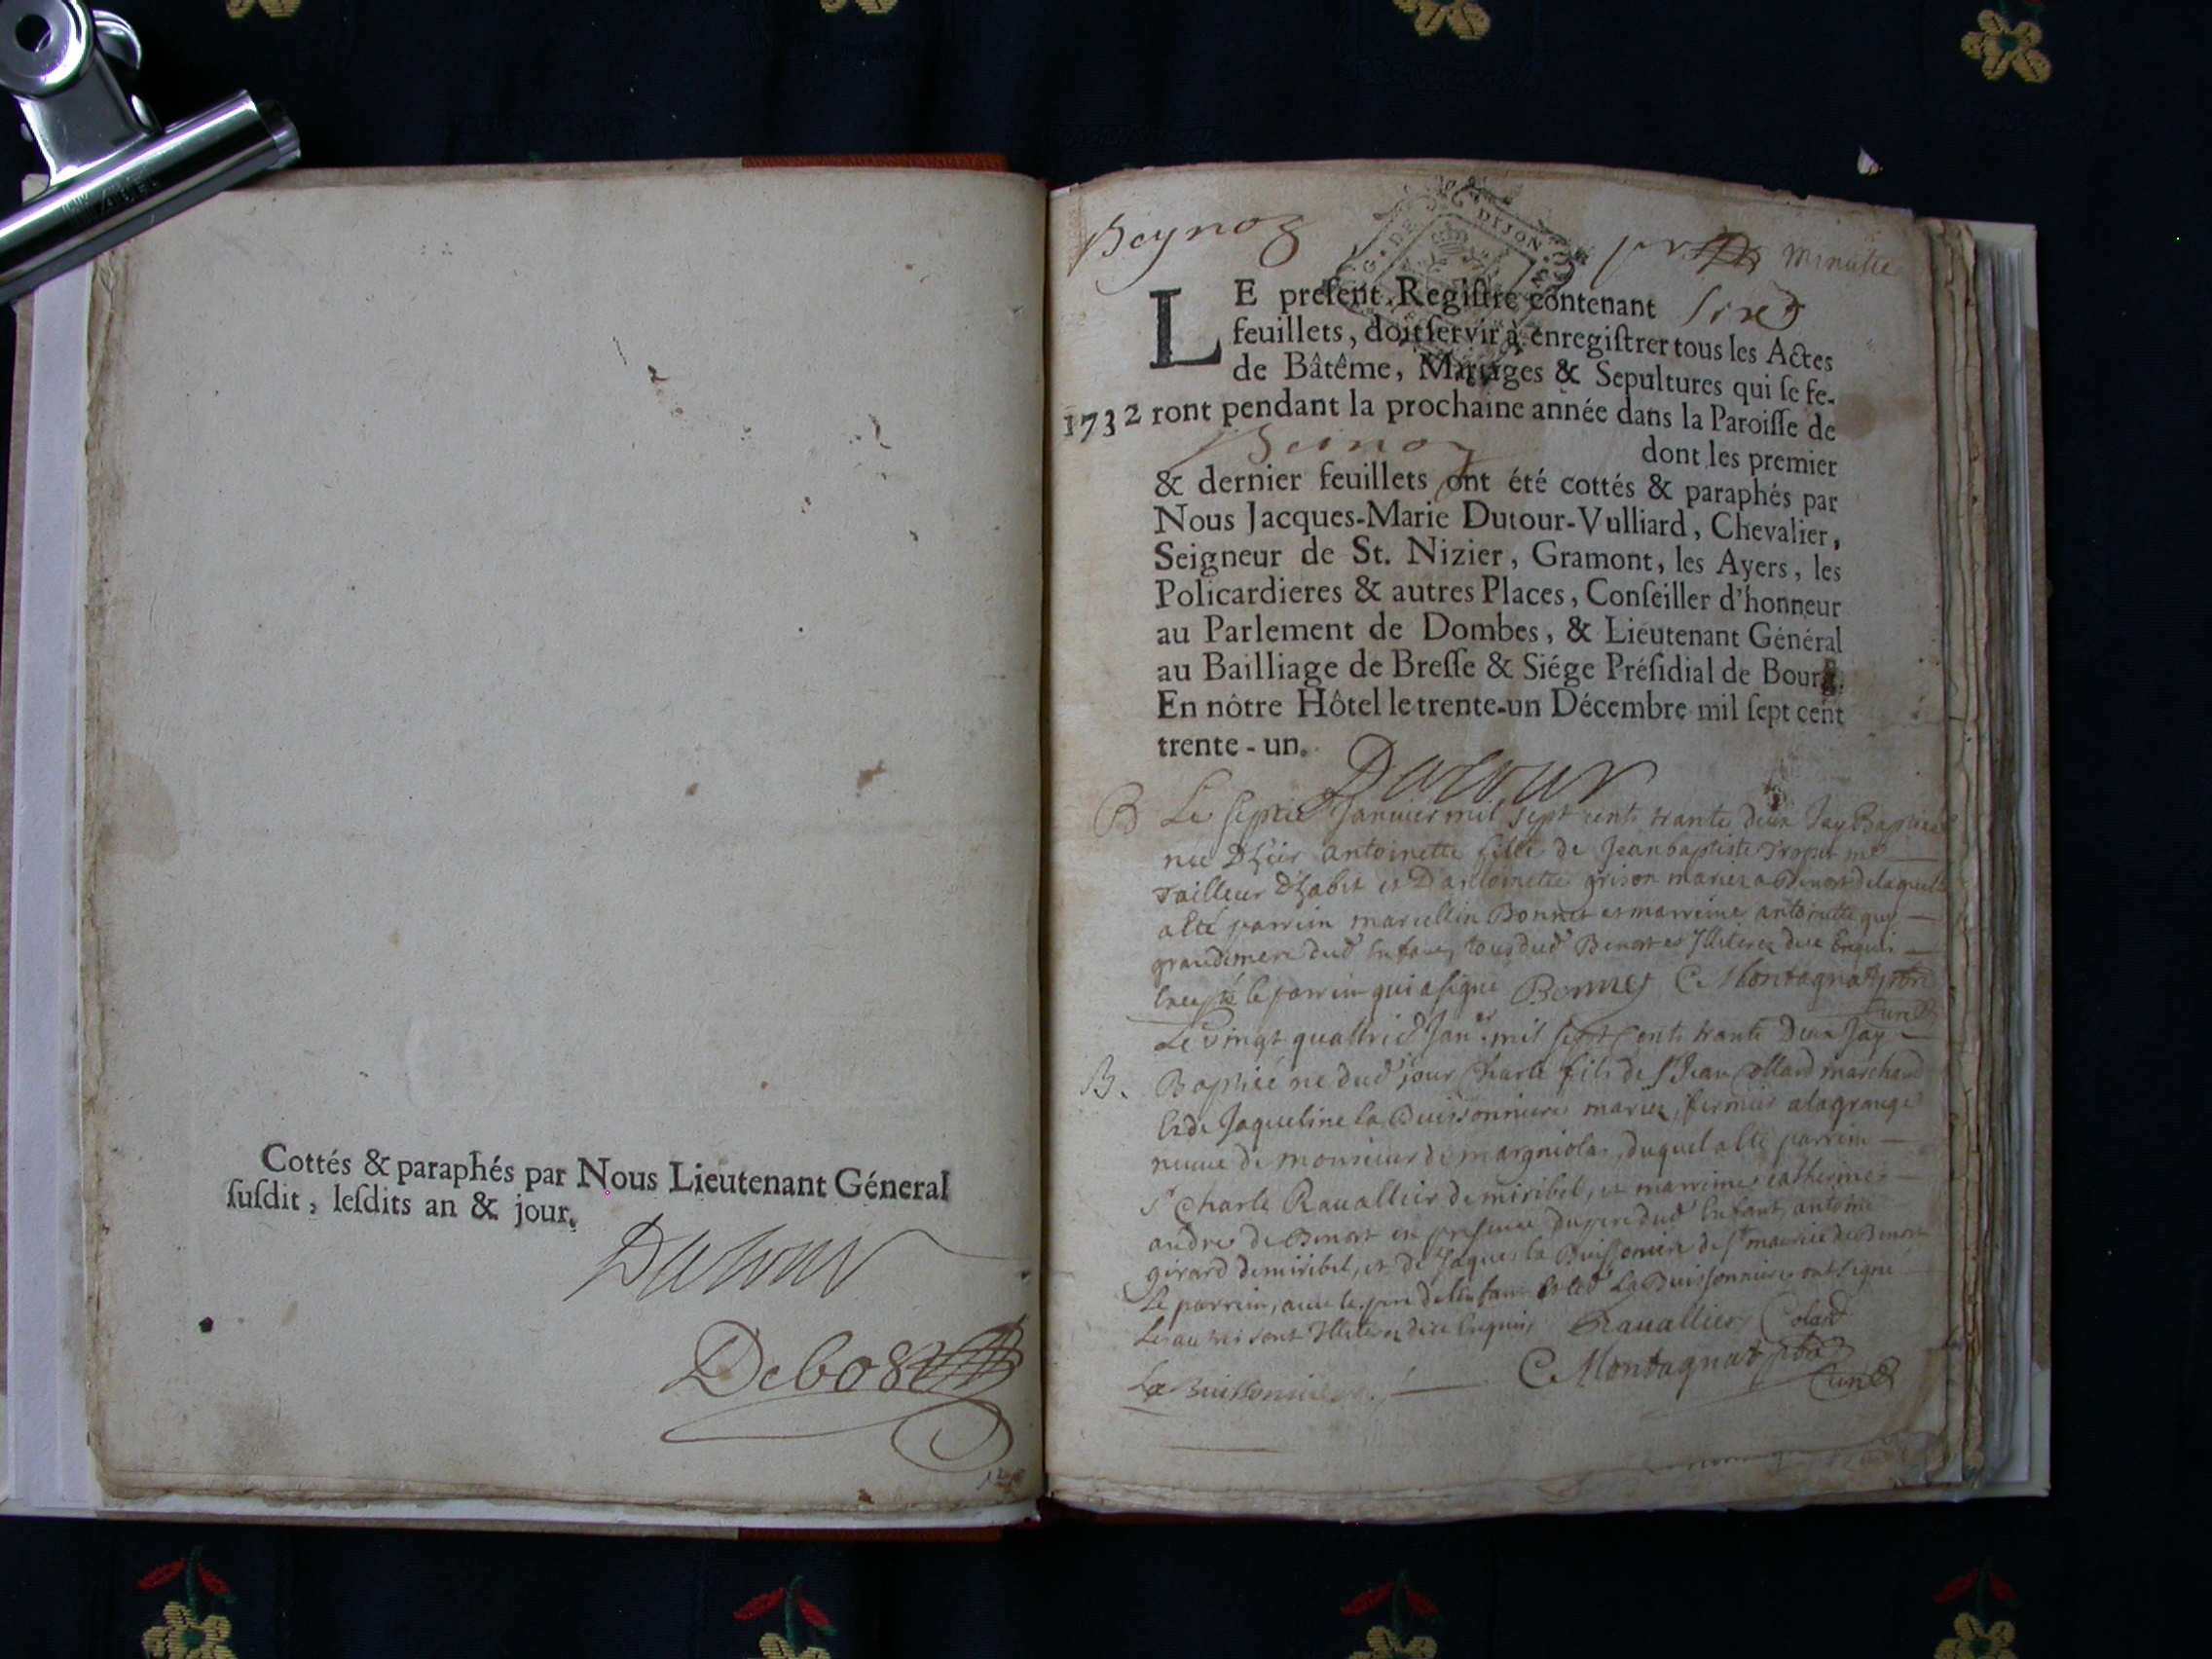 Cottés & paraphés par Nous Lieutenant Géneral
ſuſdit, leſdits an & jour.
Dutour
Beynoz
G. DE DIJON
minutte
LE preſent Regiſtre contenant sixt
feuillets, doit ſervir à enregiſtrer tous les Actes
de Bâtême, Mariages & Sepultures qui ſe fe-
1732 ront pendant la prochaine année dans la Paroiſſe de
Beinoz dont les premier
& dernier feuillets ont été cottés & paraphés par
Nous Jacques-Marie Dutour-Vulliard, Chevalier,
Seigneur de St. Nizier, Gramont, les Ayers, les
Policardieres & autres Places, Conſeiller d'honneur
au Parlement de Dombes, & Lieutenant Général
au Bailliage de Breſſe & Siége Préſidial de Bourg.
En nôtre Hôtel le trente-un Décembre mil ſept cent
trente-un.
Dutour
B Le septie Janvier mil sept cents trante deux Jay Baptisé
née D'hier antoinette fille de Jeanbaptiste me
Tailleur D'habit et D'antoinette grison mariez a Benost delaquelle
a été parrein marcellin Bonnet et marreine antoinette guy
grandemere dud enfant tous dud Benost et Illiterez dece Enquis
Excepté le parrein qui a signé Bonnet C Montagnat ptre
Curé
Le vingt quattrie Janer mil sept cents trante Deux Jay
B. Baptisé ne dud jour Charle fils de sr Jean Collard marchand
Et de Jaqueline la Buissonniere mariez, fermier a la grange
neuve de monsieur de margniolas, duquel a été parrein
sr Charle Ravallier de miribel, et marreine catherine
andre de Benost en presence du pere dud Enfant, antoine
girard de miribel, et de Jaques la Buissoniere de st maurice de Benost
Le parrein, avec le pere de l'enfant et led La Buissonniere ont signé
Les autres sont Illiterez dece Enquis Ravallier Colard
La Buissonniere C Montagnat ptre
Curé